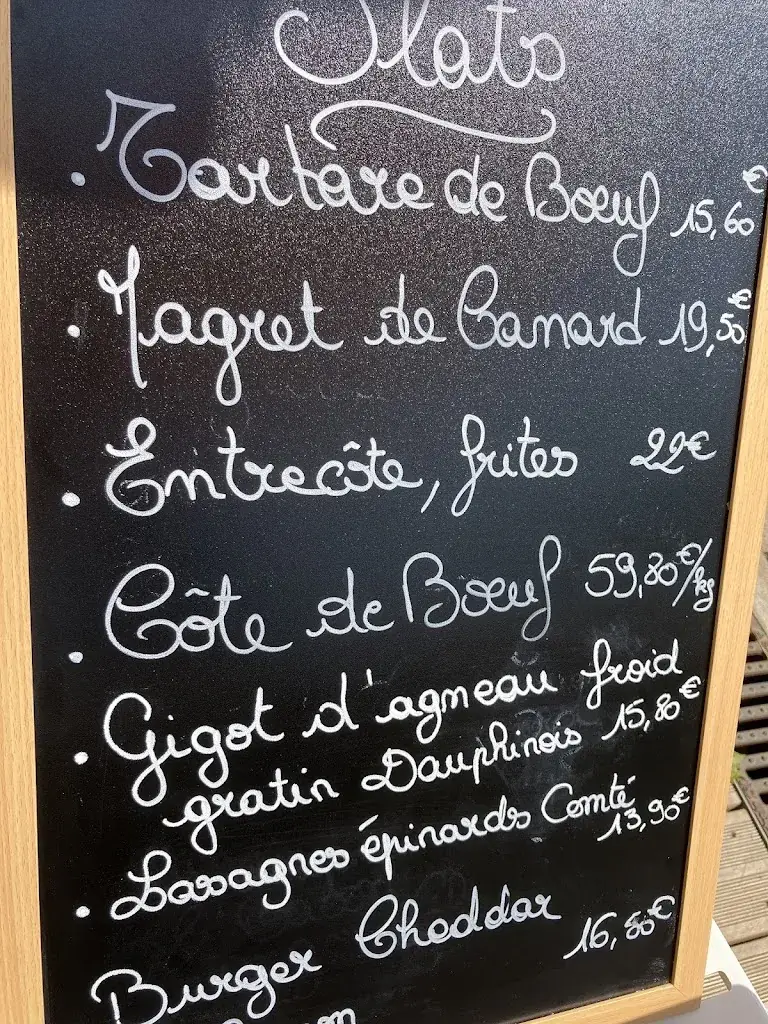 Plats
· Tartare de Bœuf 15,60€
· Magret de Canard 19,50€
· Entrecôte, frites 22€
· Côte de Bœuf 59,80€/kg
· Gigot d'agneau froid
gratin Dauphinois 15,80€
· Lasagnes épinards Comté
13,90€
Burger Cheddar